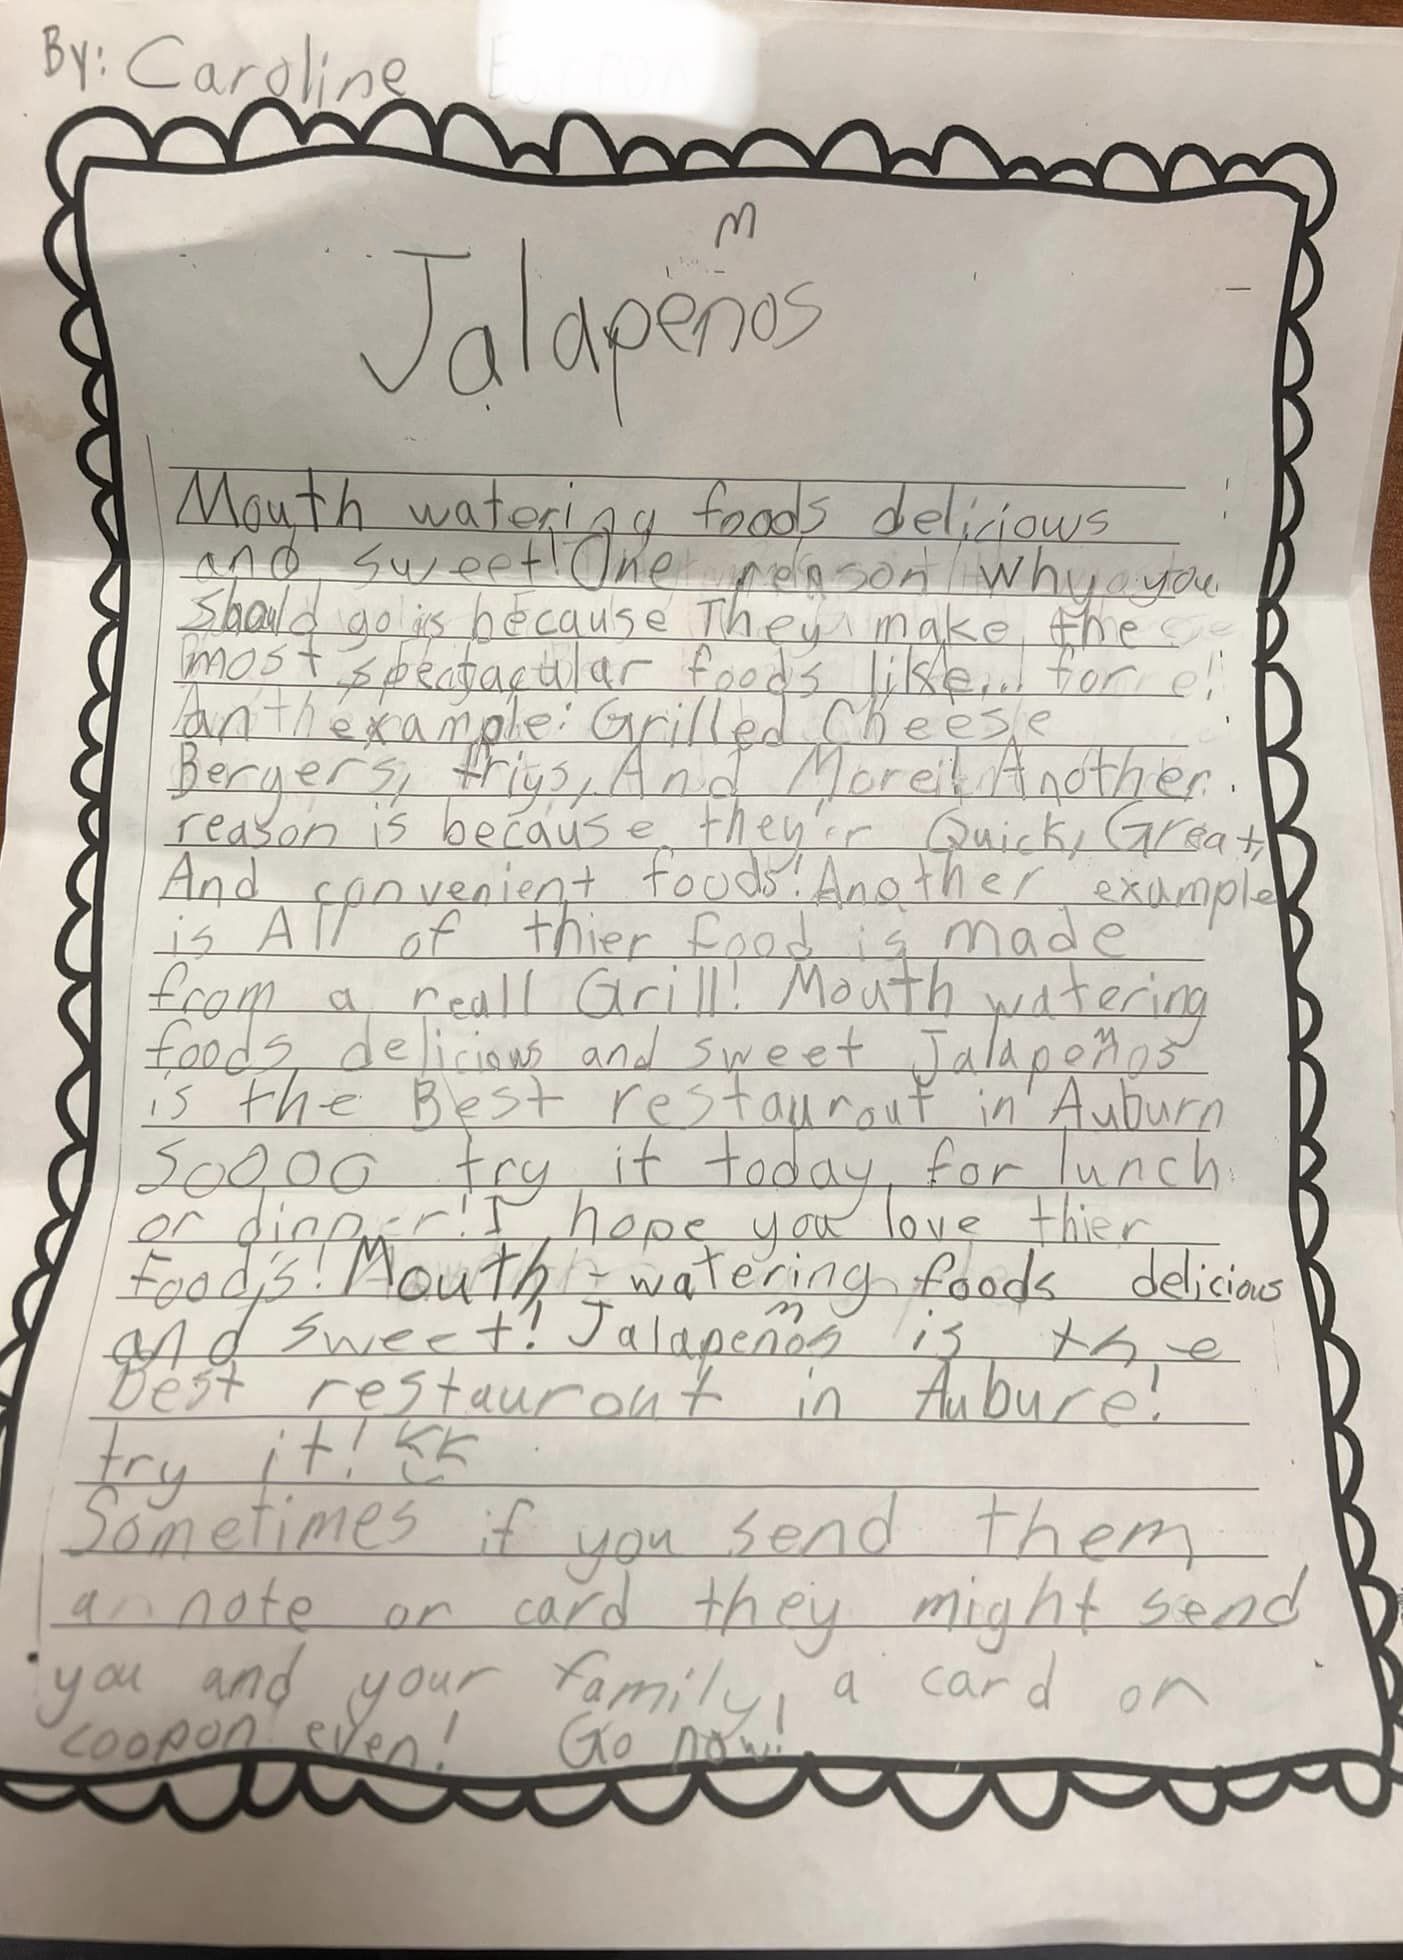 By: Caroline
Jalapeños
Mouth watering foods delicious
and sweet! One reason why you
should go is because They make the
most spectacular foods like... for
an example: Grilled Cheese
Bergers, friys, And More! Another
reason is because they'r Quick, Great,
And convenient foods! Another example
is All of thier food is made
from a reall Grill! Mouth watering
foods delicious and sweet Jalapeños
is the Best restaurout in Auburn
sooooo try it today for lunch
or dinner! I hope you love thier
food,s! Mouth-watering foods delicious
and sweet! Jalapeños is the
Best restaurout in Aubure!
try it!
Sometimes if you send them
a note or card they might send
you and your family, a card or
coopon even! Go now!